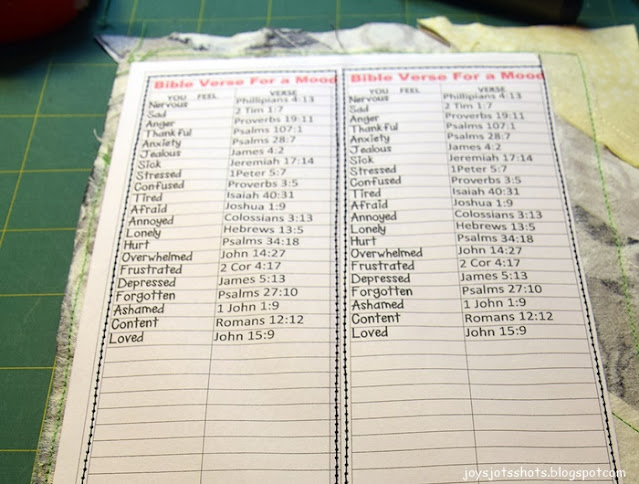 Bible Verse For a Mood
YOU FEEL VERSE
Nervous Phillipians 4:13
Sad 2 Tim 1:7
Anger Proverbs 19:11
Thankful Psalms 107:1
Anxiety Psalms 28:7
Jealous James 4:2
Sick Jeremiah 17:14
Stressed 1Peter 5:7
Confused Proverbs 3:5
Tired Isaiah 40:31
Afraid Joshua 1:9
Annoyed Colossians 3:13
Lonely Hebrews 13:5
Hurt Psalms 34:18
Overwhelmed John 14:27
Frustrated 2 Cor 4:17
Depressed James 5:13
Forgotten Psalms 27:10
Ashamed 1 John 1:9
Content Romans 12:12
Loved John 15:9
Bible Verse For a Mood
YOU FEEL VERSE
Nervous Phillipians 4:13
Sad 2 Tim 1:7
Anger Proverbs 19:11
Thankful Psalms 107:1
Anxiety Psalms 28:7
Jealous James 4:2
Sick Jeremiah 17:14
Stressed 1Peter 5:7
Confused Proverbs 3:5
Tired Isaiah 40:31
Afraid Joshua 1:9
Annoyed Colossians 3:13
Lonely Hebrews 13:5
Hurt Psalms 34:18
Overwhelmed John 14:27
Frustrated 2 Cor 4:17
Depressed James 5:13
Forgotten Psalms 27:10
Ashamed 1 John 1:9
Content Romans 12:12
Loved John 15:9
joysjotsshots.blogspot.com